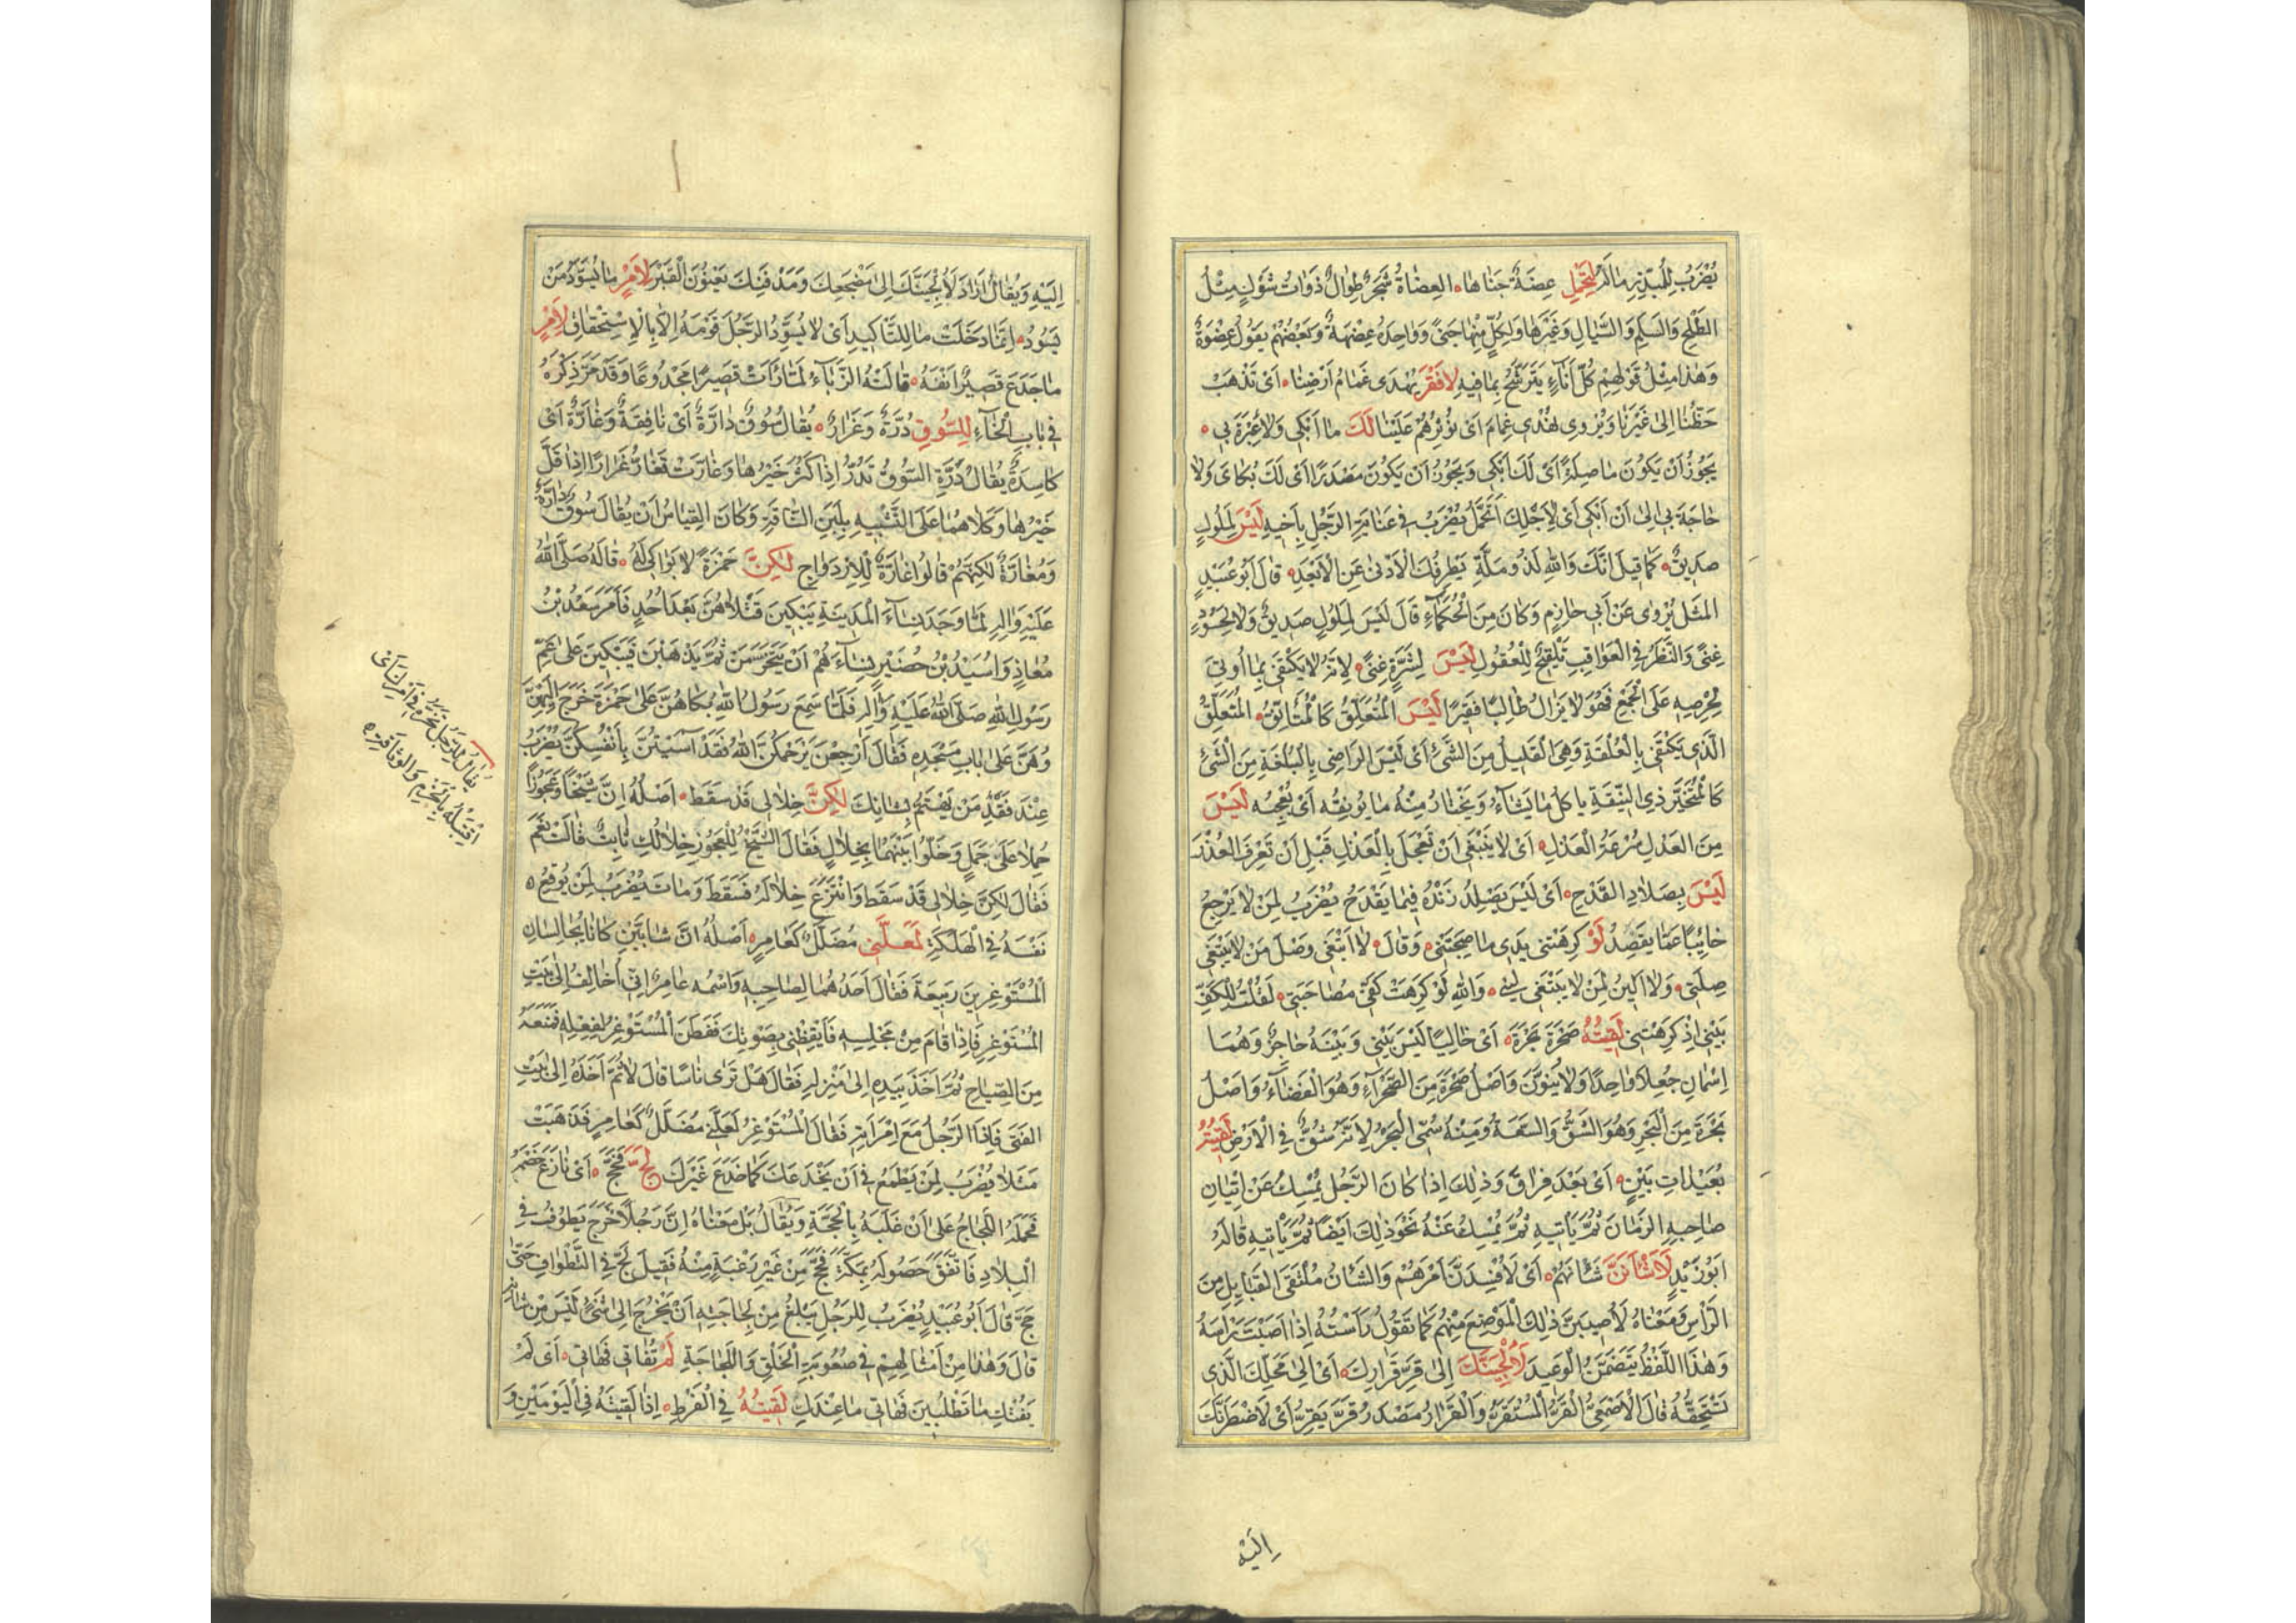 يُضْرَبُ لِلْمُبَذِّرِ مٰالَهُ لِتَحْمِلْ عِضَةٌ جَنٰاهٰا، العِضٰاةُ شَجَرٌ طِوٰالٌ ذَوٰاتُ شَوْكٍ مِثْلُ
الطَلْحِ وَالسَلَمِ وَالسَّيٰالِ وَغَيْرِهٰا وَلِكُلٍّ مِنْهٰا جَنًى وَوٰاحِدَةُ عِضْهَةٌ وَبَعْضُهُمْ يَقُولُ عِضْوَةٌ
وَهٰذٰا مِثْلُ قَوْلِهِمْ كُلُّ اِنٰاءٍ يَتَرَشَّحُ بِمٰا فِيهِ لِافَقْرَ يُهْدَى غَمٰامُ اَرْضِنٰا، اَىْ تَذْهَبُ
حَظُّنٰا اِلىٰ غَيْرِنٰا وَيُرْوى يُهْدِى غِمٰامَ اَىْ يُؤْثِرُهُمْ عَلَيْنٰا لَكَ مٰا اَبْكِى وَلٰا عَبْرَةَ بِى،
يَجُوزُ اَنْ يَكُونَ مٰا صِلَةً اَىْ لَكَ اَبْكِى وَيَجُوزُ اَنْ يَكُونَ مَصْدَرًا اَىْ لَكَ بُكٰائى وَلٰا
حٰاجَةَ بِى اِلىٰ اَنْ اَبْكِى اَىْ لِاَجْلِكَ اَتَحَمَّلُ يُضْرَبُ فى عِنٰايَةِ الرَّجُلِ بِاَخِيهِ لَيْسَ لِمَلُولٍ
صَدِيقٌ، كَمٰا قِيلَ اِنَّكَ وَاللهِ لَذُو مَلَّةٍ يَطْرِفُكَ الْاَدْنىٰ عَنِ الْاَبْعَدِ، قٰالَ اَبُو عُبَيْدٍ
المَثَلُ يُرْوىٰ عَنْ اَبِى حٰازِمٍ وَكٰانَ مِنَ الْحُكَمٰاءِ قٰالَ لَيْسَ لِمَلُولٍ صَدِيقٌ وَلٰا لِحَسُودٍ
غِنًى وَالنَّظَرُ فِى الْعَوٰاقِبِ تَلْقِيحٌ لِلْعُقُولِ لَيْسَ لِشَرَهٍ غِنًى، لِاَنَّهُ لٰا يَكْتَفِى بِمٰا اُوتِىَ
لِحِرْصِهِ عَلَى الْجَمْعِ فَهُوَ لٰا يَزٰالُ طٰالِبًا فَقِيرًا لَيْسَ الْمُتَعَلِّقُ كَالْمُتَاَنِّقِ، المُتَعَلِّقُ
الَّذِى يَكْتَفِى بِالْعُلْقَةِ وَهِىَ الْقَلِيلُ مِنَ الشَّئِ اَىْ لَيْسَ الرٰاضِى بِالْبُلْغَةِ مِنَ الشَّئِ
كَالْمُتَخَيِّرِ ذِى النِّيقَةِ يٰاكُلُ مٰا يَشٰاءُ وَيَخْتٰارُ مِنْهُ مٰا يُونِقُهُ اَىْ يُعْجِبُهُ لَيْسَ
مِنَ العَدْلِ سُرْعَةُ الْعَذْلِ، اَىْ لٰا يَنْبَغِى اَنْ تَعْجَلَ بِالْعَذْلِ قَبْلِ اَنْ تَعْرِفَ العُذْرَ
لَيْسَ بِصَلّٰادِ القَدْحِ، اَىْ لَيْسَ يَصْلِدُ زَنْدُهُ فِيمٰا يَقْدَحُ يُضْرَبُ لِمَنْ لٰا يَرْجِعُ
خٰائِبًا عَمّٰا يَقْصِدُ لَوْ كَرِهَتْنِى يَدِى مٰا صَحِبَتْنِى، وَقٰالَ، لٰا اَبْتَغِى وَصْلَ مَنْ لٰا يَبْتَغِى
صِلَتِى، وَلٰا اَلِينُ لِمَنْ لٰا يَبْتَغِى لِينِى، وَاللهِ لَوْ كَرِهَتْ كَفِّى مُصٰاحَبَتِى، لَقُلْتُ لِلْكَفِّ
بِينِى اِذْ كَرِهْتِنِى لَقِيتُهُ صَحْرَةَ بَحْرَةَ، اَىْ خٰالِيًا لَيْسَ بَيْنِى وَبَيْنَهُ حٰاجِزٌ وَهُمٰا
اِسْمٰانِ جُعِلٰا وٰاحِدًا وَلٰا يُنَوَّنُ وَاَصْلُ صَحْرَةَ مِنَ الصَّحْرٰاءِ وَهُوَ الْفَضٰاءُ وَاَصْلُ
بَحْرَةَ مِنَ الْبَحْرِ وَهُوَ الشَقُّ وَالسَّعَةُ وَمِنْهُ سُمِّى الْبَحْرُ لِاَنَّهُ شُقَّ فِى الْاَرْضِ لَقِيتُهُ
بُعَيْدٰاتِ بَيْنٍ، اَىْ بَعْدَ فِرٰاقٍ وَذٰلِكَ اِذٰا كٰانَ الرَّجُلُ يُمْسِكُ عَنْ اِتْيٰانِ
صٰاحِبِهِ الزَمٰانَ ثُمَّ يَاْتِيهِ ثُمَّ يُمْسِكُ عَنْهُ نَحْوَ ذٰلِكَ اَيْضًا ثُمَّ يَاْتِيهِ قٰالَهُ
اَبُو زَيْدٍ لَاَشْاَنَنَّ شَاْنَهُمْ، اَىْ لَاُفْسِدَنَّ اَمْرَهُمْ وَالشَّاْنُ مُلْتَقَى القَبٰايِلِ مِنَ
الرَّاْسِ وَمَعْنٰاهُ لَاُصِيبَنَّ ذٰلِكَ الْمَوْضِعَ مِنْهُمْ كَمٰا تَقُولُ رَاَسْتُهُ اِذٰا اَصَبْتَ رَاْسَهُ
وَهٰذَا اللَّفْظُ يَتَضَمَّنُ الْوَعِيدَ لَاُلْجِئَنَّكَ اِلىٰ قُرِّ قَرٰارِكَ، اَىْ اِلىٰ مَحَلِّكَ الَّذِى
تَسْتَحِقُّهُ قٰالَ الْاَصْمَعِىُّ الْقُرُّ الْمُسْتَقَرُّ وَالْقَرٰارُ مَصْدَرُ قَرَّ يَقِرُّ اَىْ لَاَضْطَرَّنَّكَ
اِلَيْهِ
اِلَيْهِ وَيُقٰالُ اَرٰادَ لَاُلْجِئَنَّكَ اِلىٰ مَضْجَعِكَ وَمَدْفَنِكَ يَعْنُونَ الْقَبْرَ لِاَمْرٍ مٰا يُسَوَّدُ مَنْ
يَسُودُ، اِنَّمٰا دَخَلَتْ مٰا لِلتَّاْكِيدِ اَىْ لٰا يُسَوِّدُ الرَّجُلَ قَوْمَهُ اِلّٰا بِالْاِسْتِحْقٰاقِ لِاَمْرٍ
مٰا جَدَعَ قَصِيرٌ اَنْفَهُ، قٰالَتْهُ الزَّبّٰاءُ لَمّٰا رَاَتْ قَصِيرًا مَجْدُوعًا وَقَدْ مَرَّ ذِكْرُهُ
فِى بٰابِ الْخٰاءِ لِلسُّوقِ دُرَّةٌ وَغِرٰارٌ، يُقٰالُ سُوقٌ دٰارَّةٌ اَىْ نٰافِقَةٌ وَغٰارَّةٌ اَىْ
كٰاسِدَةٌ يُقٰالُ دَرَّتِ السُّوقُ تَدُرُّ اِذٰا كَثُرَ خَيْرُهٰا وَغٰارَّتْ تُغٰارُّ غِرٰارًا اِذٰا قَلَّ
خَيْرُهٰا وَكِلٰاهُمٰا عَلَى التَّشْبِيهِ بِلَبَنِ النّٰاقَةِ وَكٰانَ القِيٰاسُ اَنْ يُقٰالَ سُوقٌ دٰارَّةٌ
وَمُغٰارَّةٌ لٰكِنَّهُمْ قٰالُوا غٰارَّةٌ لِلْاِزْدِوٰاجِ لٰكِنَّ حَمْزَةَ لٰا بَوٰاكِىَ لَهُ، قٰالَهُ صَلَّى اللهُ
عَلَيْهِ وَاٰلِهِ لَمّٰا وَجَدَ نِسٰاءَ الْمَدِينَةِ يَبْكِينَ قَتْلٰاهُنَّ بَعْدَ اُحُدٍ فَاَمَرَ سَعْدُ بْنُ
مُعٰاذٍ وَاُسَيْدُ بْنُ حُضَيْرٍ نِسٰاءَهُمْ اَنْ يَتَحَزَّمْنَ ثُمَّ يَذْهَبْنَ فَيَبْكِينَ عَلىٰ عَمِّ
رَسُولِ اللهِ صَلَّى اللهُ عَلَيْهِ وَاٰلِهِ فَلَمّٰا سَمِعَ رَسُولُ اللهِ بُكٰاهُنَّ عَلىٰ حَمْزَةَ خَرَجَ اِلَيْهِنَّ
وَهُنَّ عَلىٰ بٰابِ مَسْجِدِهِ فَقٰالَ اِرْجِعْنَ يَرْحَمُكُنَّ اللهُ فَقَدْ اٰسَيْتُنَّ بِاَنْفُسِكُنَّ يُضْرَبُ
عِنْدَ فَقْدِ مَنْ يَهْتَمُّ بِشٰانِكَ لٰكِنَّ خِلٰالِى قَدْ سَقَطَ، اَصْلُهُ اِنَّ شَيْخًا وَعَجُوزًا
حُمِلٰا عَلىٰ جَمَلٍ وَخَلُّوا بَيْنَهُمٰا بِخِلٰالٍ فَقٰالَ الشَّيْخُ لِلْعَجُوزِ خِلٰالُكِ ثٰابِتٌ قٰالَتْ نَعَمْ
فَقٰالَ لٰكِنَّ خِلٰالِى قَدْ سَقَطَ وَانْتَزَعَ خِلٰالَهُ فَسَقَطَ وَمٰاتَ يُضْرَبُ لِمَنْ يُوقِعُ
نَفْسَهُ فِى الْهَلَكَةِ لَعَلَّنِى مُضَلَّلٌ كَعٰامِرٍ، اَصْلُهُ اَنَّ شٰابَّيْنِ كٰانٰا يُجٰالِسٰانِ
الْمُسْتَوْغِرَ بْنَ رَبِيعَةَ فَقٰالَ اَحَدُهُمٰا لِصٰاحِبِهِ وَاسْمُه عٰامِرٌ اِنِّى اُخٰالِفُ اِلىٰ بَيْتِ
الْمُسْتَوْغِرِ فَاِذٰا قٰامَ مِنْ مَجْلِسِهِ فَاَيْقِظْنِى بِصَوْتِكَ فَفَطَنَ الْمُسْتَوْغِرُ لِفِعْلِهِ فَمَنَعَهُ
مِنَ الصِّيٰاحِ ثُمَّ اَخَذَ بِيَدِهِ اِلىٰ مَنْزِلِهِ فَقٰالَ هَلْ تَرىٰ بٰاْسًا قٰالَ لٰا ثُمَّ اَخَذَهُ اِلىٰ بَيْتِ
الفَتىٰ فَاِذَا الرَّجُلُ مَعَ اِمْرَاَتِهِ فَقٰالَ الْمُسْتَوْغِرُ لَعَلَّنِى مُضَلَّلٌ كَعٰامِرٍ فَذَهَبَتْ
مَثَلًا يُضْرَبُ لِمَنْ يَطْمَعُ فِى اَنْ يَخْدَعَكَ كَمٰا خَدَعَ غَيْرَكَ لَجَّ فَحَجَّ، اَىْ نٰازَعَ خَصْمَهُ
فَحَمَلَهُ اللَّجٰاجُ عَلىٰ اَنْ غَلَبَهُ بِالْحُجَّةِ وَيُقٰالُ بَلْ مَعْنٰاهُ اِنَّ رَجُلًا خَرَجَ يَطُوفُ فِى
الْبِلٰادِ فَاتَّفَقَ حُصُولُهُ بِمَكَّةَ فَحَجَّ مِنْ غَيْرِ رَغْبَةٍ مِنْهُ فَقِيلَ لَجَّ فِى التَّطْوٰافِ حَتّىٰ
حَجَّ قٰالَ اَبُو عُبَيْدٍ يُضْرَبُ لِلرَّجُلِ يَبْلُغُ مِنْ لَجٰاجَتِهِ اَنْ يَخْرُجَ اِلىٰ شَىْءٍ لَيْسَ مِنْ شَاْنِهِ
قٰالَ وَهٰذٰا مِنْ اَمْثٰالِهِمْ فِى صُعُوبَةِ الْخُلْقِ وَاللَّجٰاجَةِ لَمْ تُفٰاتِى فَهٰاتِى، اَىْ لَمْ
يَفُتْكِ مٰا تَطْلُبِينَ فَهٰاتِى مٰا عِنْدَكِ لَقِيتُهُ فِى الْفَرْطِ، اِذٰا لَقِيتَهُ فِى الْيَوْمَيْنِ وَ
يُقٰالُ لِلرَّجُلِ